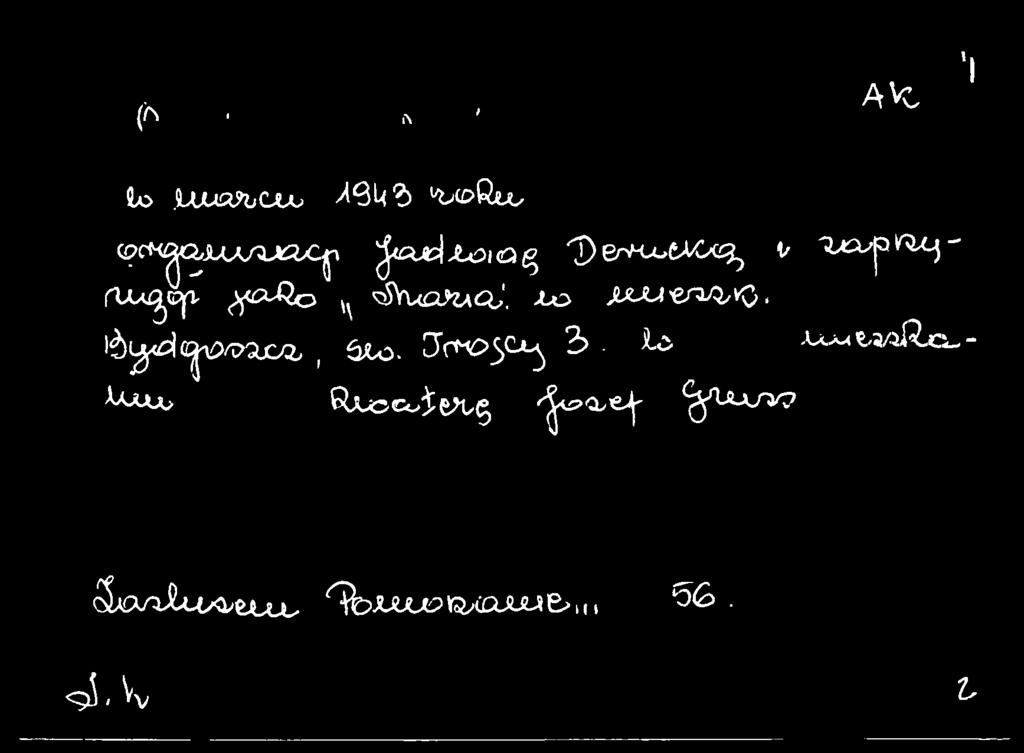 AK
w marcu 1943 roku
organizacji Jadwigę Derucką i zaprzy-
siągł jako „Maria". w mieszk.
Bydgoszcz, św. Trójcy 3. w mieszka-
niu Kwaterę Józef Gruss
Zasłużeni Pomorzanie... 56.
2